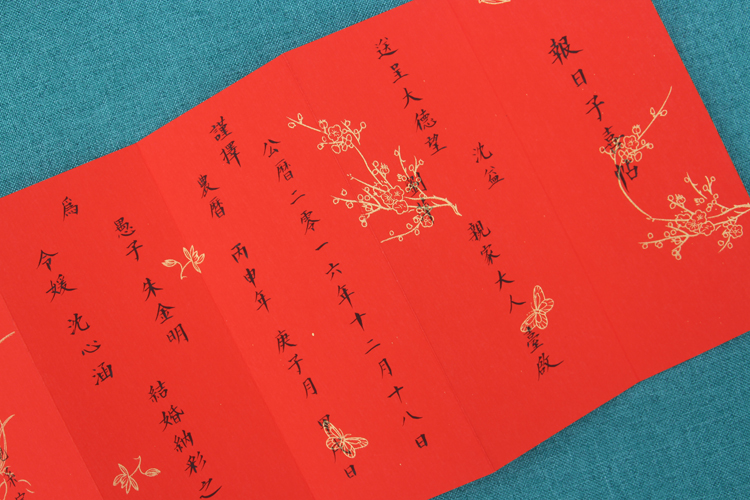 報日子喜帖
送呈大德望
沈益
親家大人 臺啟
謹擇
公暦二零一六年十二月十八日
農暦 丙申年 庚子月 日
為
愚子 朱金明
令媛 沈心涵
結婚納彩之